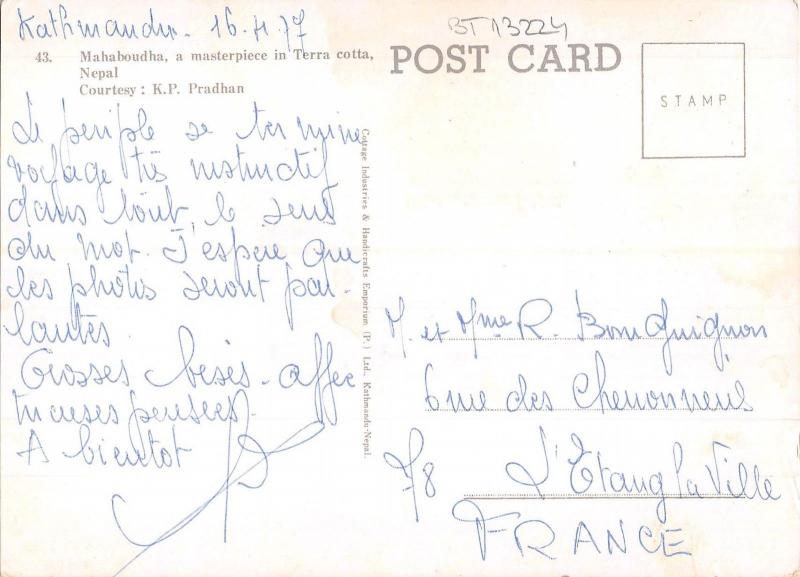 Kathmandu. 16.4.77
BT13224
43. Mahaboudha, a masterpiece in Terra cotta,
Nepal
Courtesy : K.P. Pradhan
POST CARD
STAMP
Le periple se termine
voyage très instructif
dans tout le sens
du mot. J'espère que
les photos seront par-
lantes.
Grosses bises - affec
tueuses pensées.
A bientot
Cottage Industries & Handicrafts Emporium (P.) Ltd., Kathmandu-Nepal.
M. et Mme R. Bonguignon
6 rue des
78 L'Etang la Ville
FRANCE